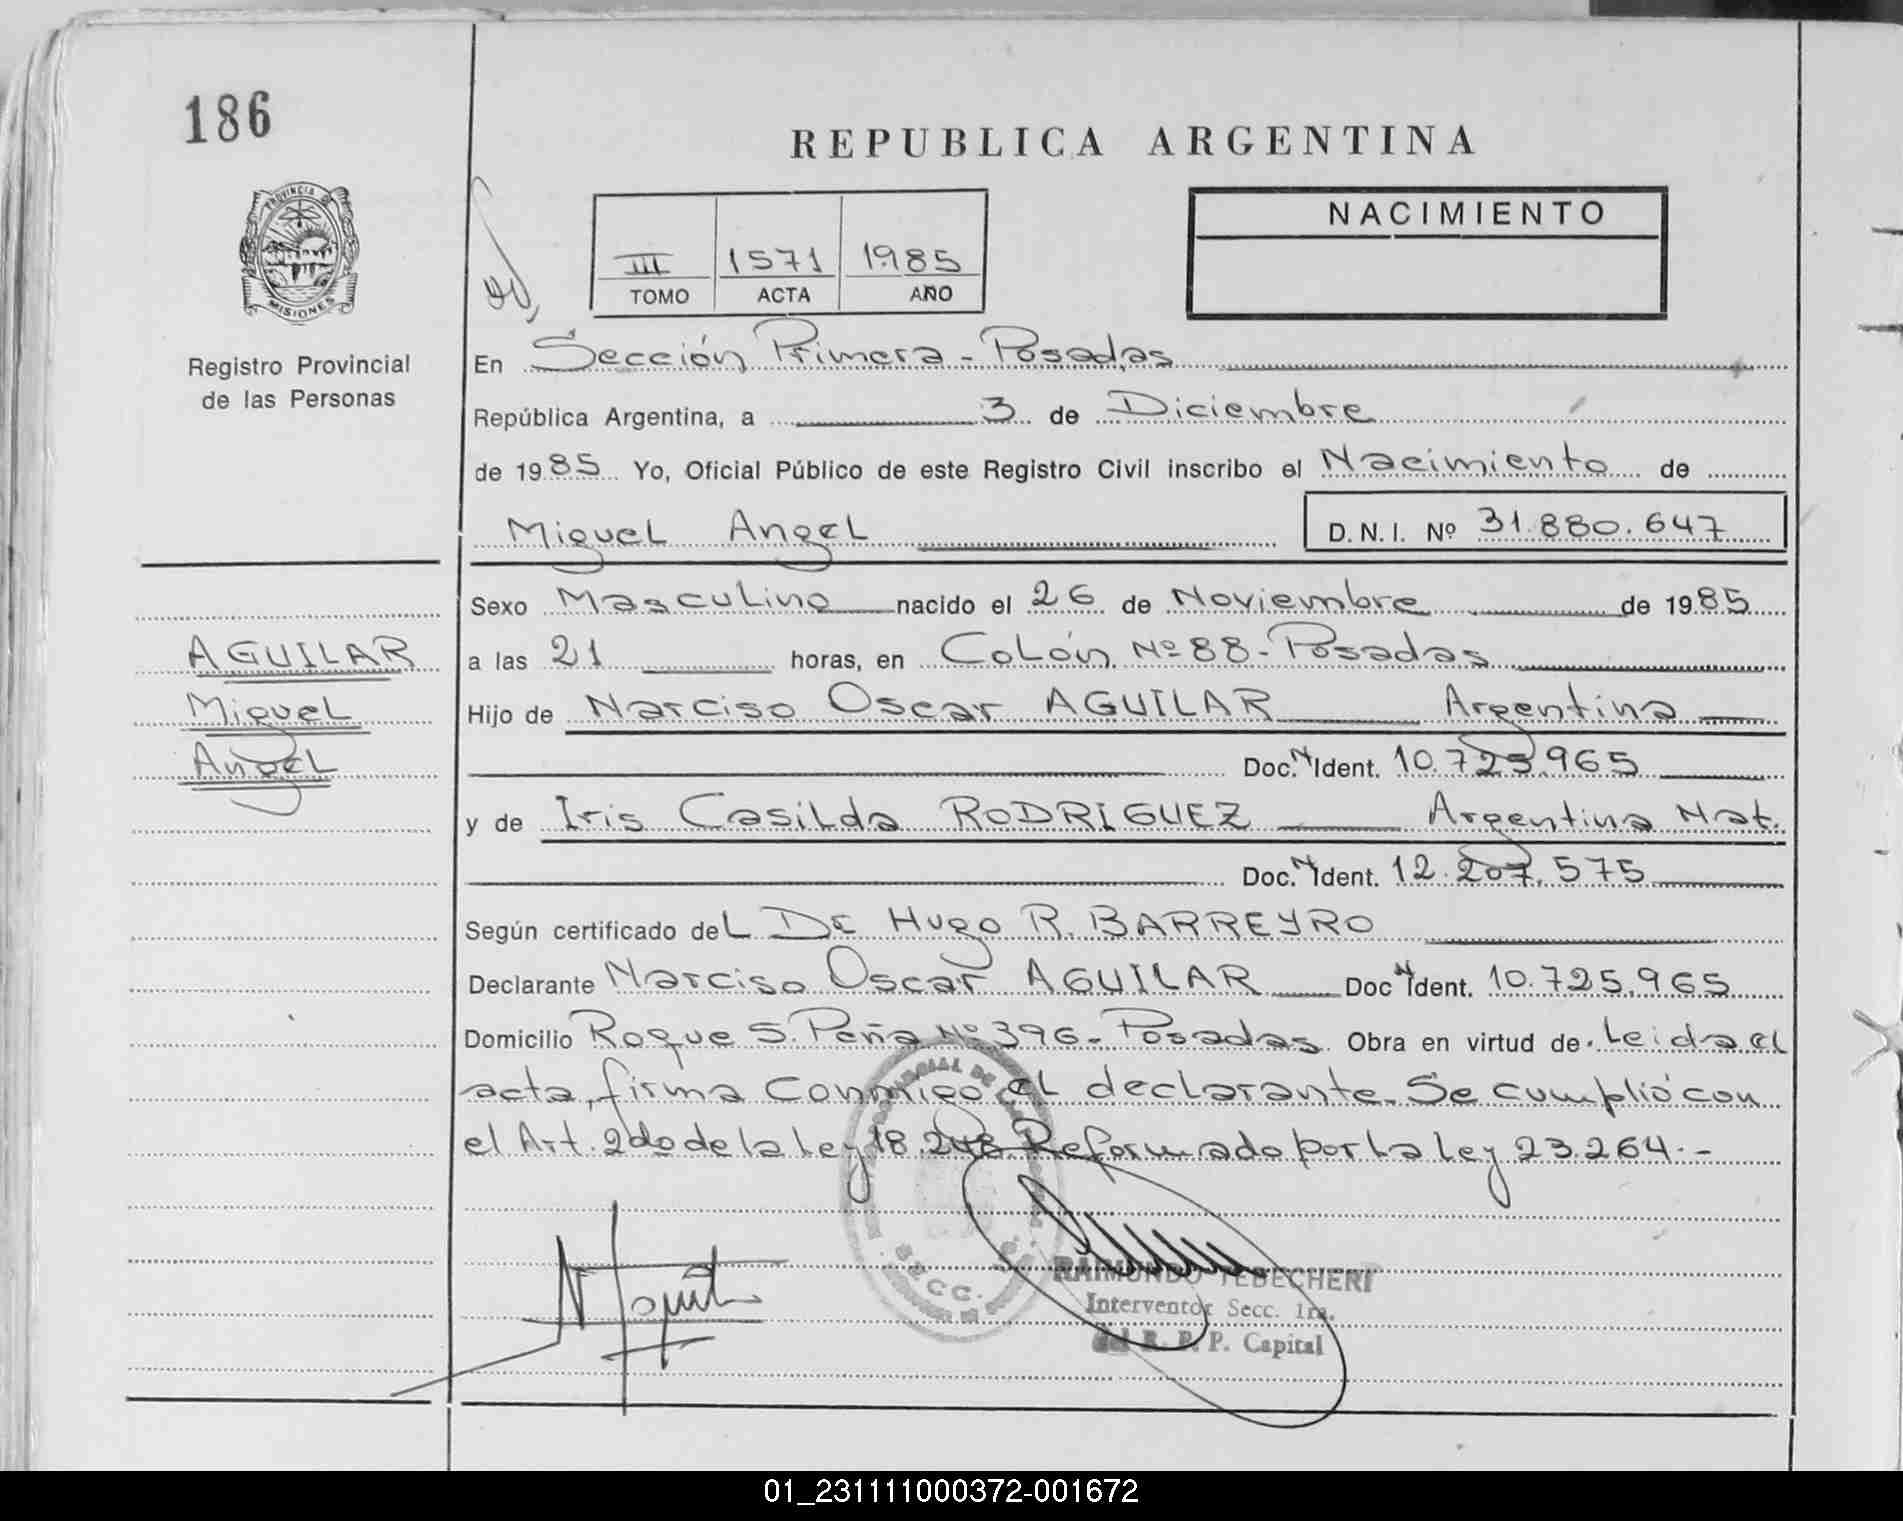 186
REPUBLICA ARGENTINA
PROVINCIA DE
MISIONES
Registro Provincial
de las Personas
NACIMIENTO
III 1571 1985
TOMO ACTA AÑO
En Sección Primera - Posadas
República Argentina, a 3 de Diciembre
de 1985 Yo, Oficial Público de este Registro Civil inscribo el Nacimiento de
Miguel Angel D.N.I. Nº 31.880.647
Sexo Masculino nacido el 26 de Noviembre de 1985
AGUILAR
Miguel
Angel
a las 21 horas, en Colón Nº 88 - Posadas
Hijo de Narciso Oscar AGUILAR Argentina
Doc. N Ident. 10.725.965
y de Iris Casilda RODRIGUEZ Argentina Nat.
Doc. N Ident. 12.207.575
Según certificado del Dr Hugo R. BARREYRO
Declarante Narciso Oscar AGUILAR Doc N Ident. 10.725.965
Domicilio Roque S. Peña Nº 396 - Posadas Obra en virtud de. Leida el
acta, firma conmigo el declarante. Se cumplió con
el Art. 2do de la Ley 18.248 Reformado por la Ley 23.264.-
SECC.
RAIMUNDO TEBECHERI
Interventor Secc. 1ra.
del R. P. P. Capital
01_231111000372-001672